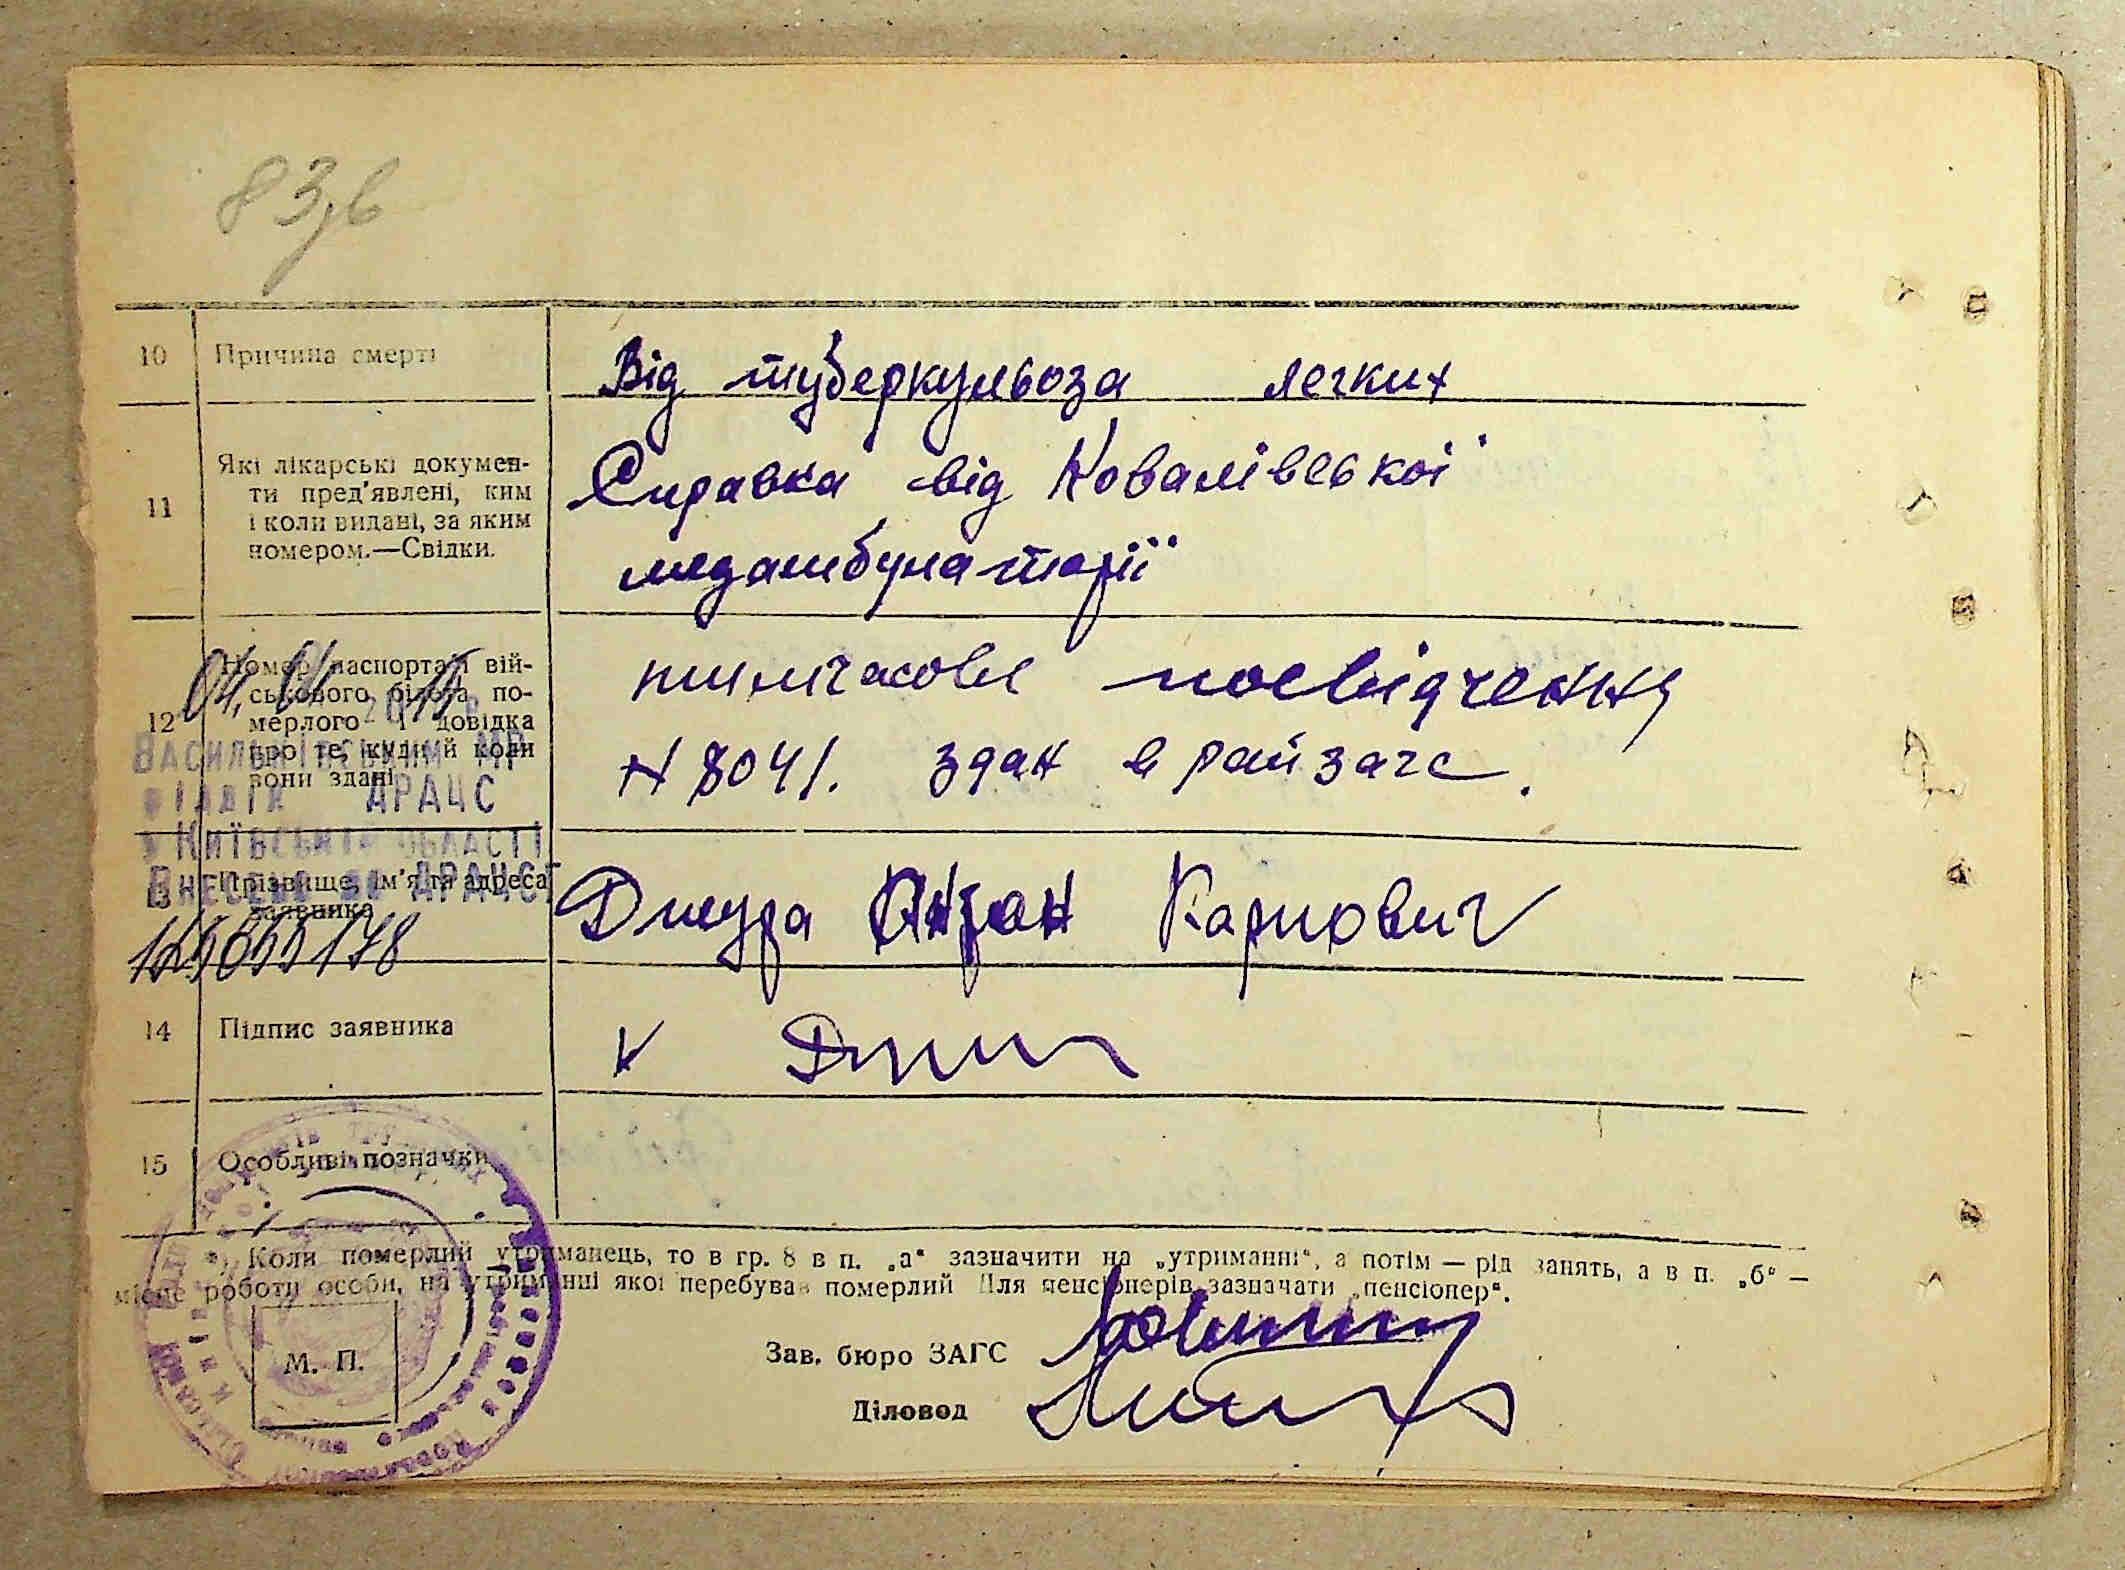 83
10 Причина смерті Від туберкульоза легких
11 Які лікарські докумен-
ти пред'явлені, ким
і коли видані, за яким
номером.—Свідки.
Справка від Ковалівської
медамбулаторії
12 Номер паспорта й вій-
ськового білета по-
мерлого і довідка
про те, куди й коли
вони здані
тимчасове посвідчення
N 8041. здан в райзагс.
Васильківським МР
відділ ДРАЦС
у Київській області
Внесено до ДРАЦСГ
13 Прізвище, ім'я та адреса
заявника
Карпович
14 Підпис заявника
15 Особливі позначки
Коли померлий утриманець, то в гр. 8 в п. „а“ зазначити на „утриманні“, а потім — рід занять, а в п. „б“ —
місце роботи особи, на утриманні якої перебував померлий Для пенсіонерів зазначати „пенсіонер“.
М. П.
Зав. бюро ЗАГС
Діловод